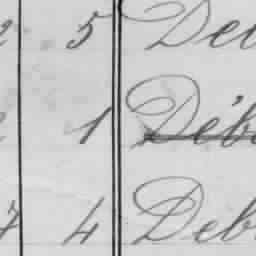 2 5 De
1 Deb
7 4 Deb